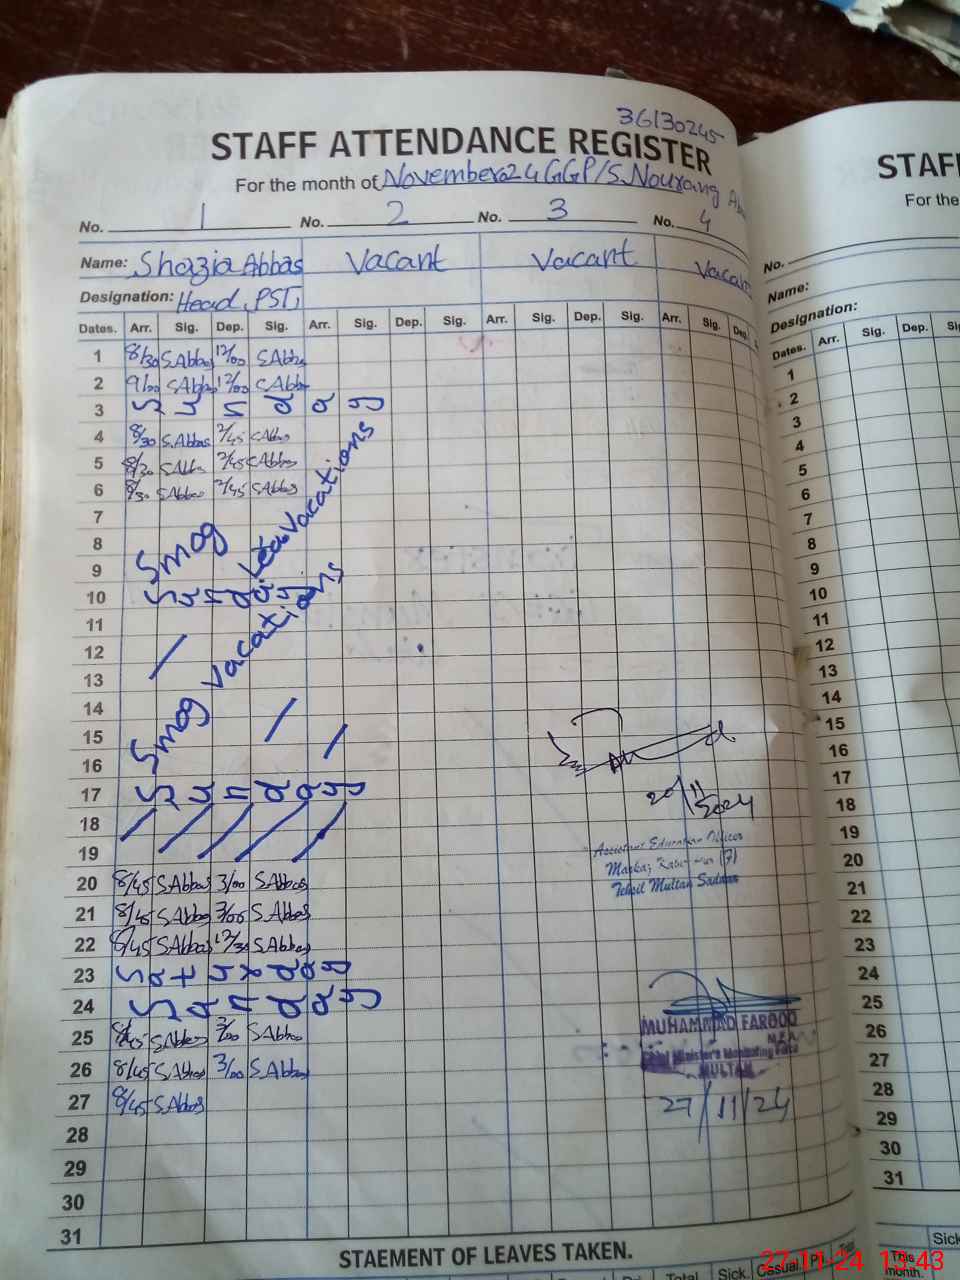 36130245
STAFF ATTENDANCE REGISTER
For the month of November 024 GGP/S Nourang
No. 1 No. 2 No. 3 No. 4
Name: Shazia Abbas Vacant Vacant Vacant
Designation: Head PST,
Dates. Arr. Sig. Dep. Sig. Arr. Sig. Dep. Sig. Arr. Sig. Dep. Sig. Arr. Sig. Dep.
1 8/30 S.Abbas 12/00 S.Abbas
2 9/00 S.Abbas 12/00 S.Abbas
3 Sunday
4 8/30 S.Abbas 2/45 S.Abbas
5 8/30 S.Abbas 2/45 S.Abbas
6 8/30 S.Abbas 2/45 S.Abbas
7
8 Smog Vacations
9
10 Sunday
11
12
13
14 Smog Vacations
15
16
17 Sunday
18
19
20 8/45 S.Abbas 3/00 S.Abbas
21 8/45 S.Abbas 3/00 S.Abbas
22 8/45 S.Abbas 12/30 S.Abbas
23 Saturday
24 Sunday
25 8/45 S.Abbas 3/00 S.Abbas
26 8/45 S.Abbas 3/00 S.Abbas
27 8/45 S.Abbas
28
29
30
31
20/11/2024
Assistant Education Officer
Markaz
Tehsil Multan Saddar
MUHAMMAD FAROOQ
M.E.A
Chief Minister's Monitoring Force
MULTAN
27/11/24
STAEMENT OF LEAVES TAKEN.
Total Sick. Casual. Pri. Total
STAFF
For the
No.
Name:
Designation:
Dates. Arr. Sig. Dep. Sig.
1
2
3
4
5
6
7
8
9
10
11
12
13
14
15
16
17
18
19
20
21
22
23
24
25
26
27
28
29
30
31
Sick
This
month.
27-11-24 13:43